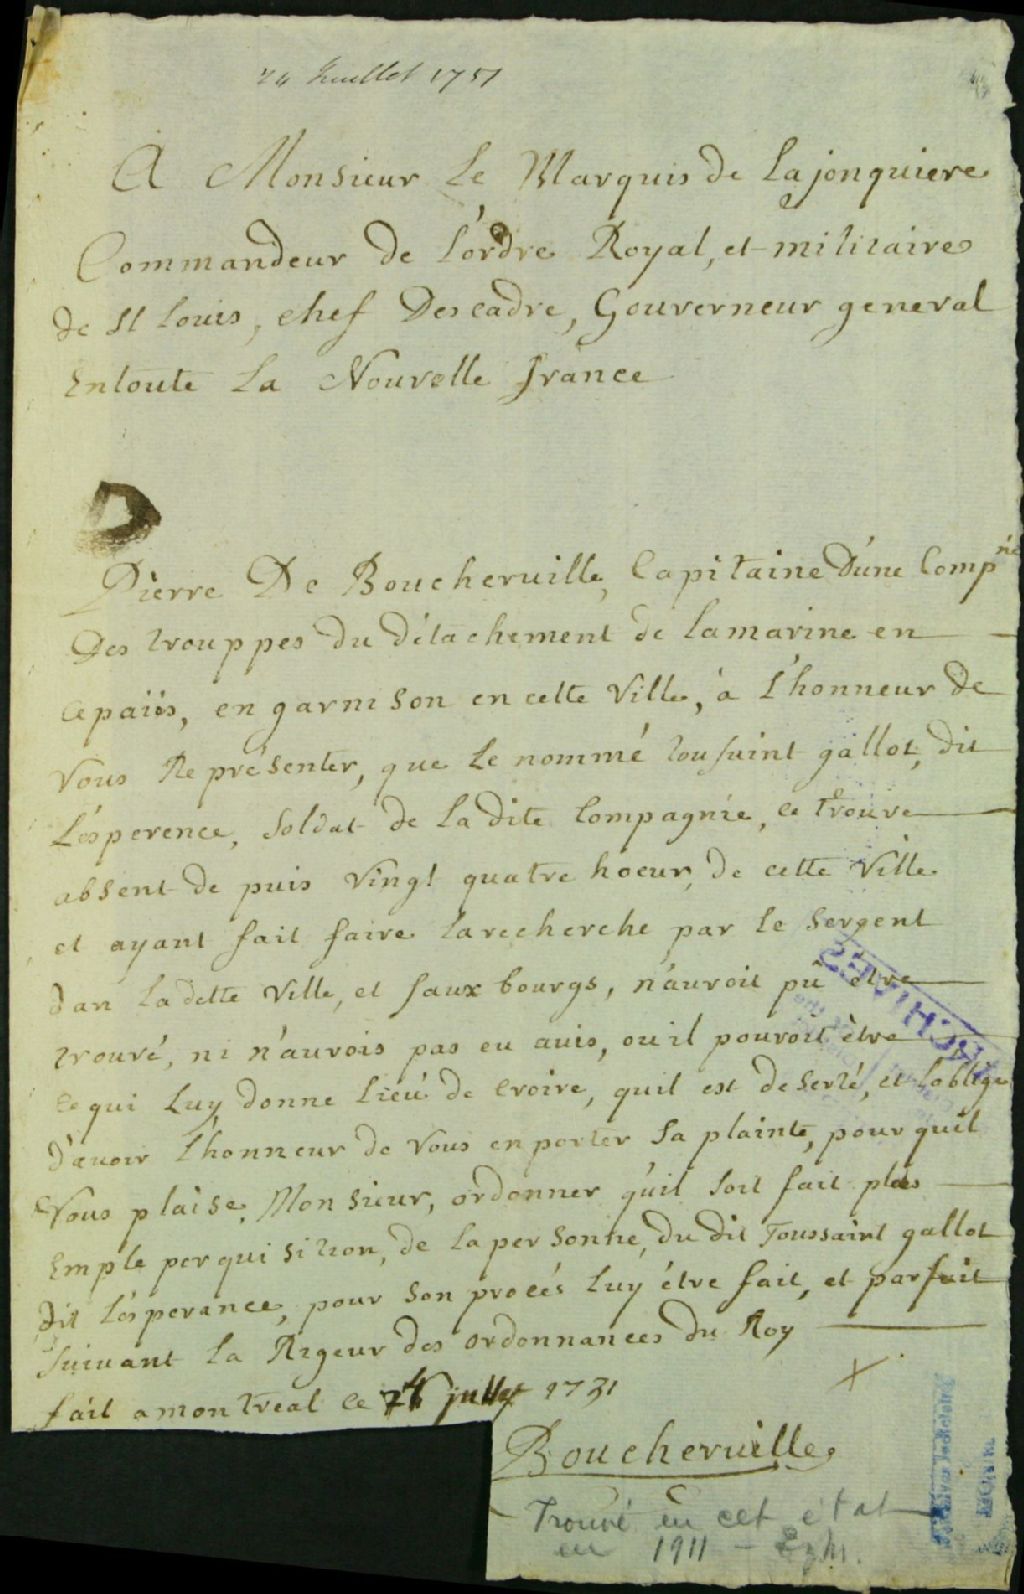 24 Juillet 1751
A Monsieur Le Marquis de Lajonquiere
Commandeur de L'ordre Royal, et militaire
de St Louis, chef Descadre, Gouverneur general
Entoute La Nouvelle france
Pierre De Boucherville, Capitaine D'une Comp^nie
Des trouppes du détachement de Lamarine en
ce païis, en garnison en cette Ville, à L'honneur de
Vous Representer, que Le nommé tousaint gallot, dit
L'ésperence, Soldat de La dite Compagnie, ce trouve
absent de puis Vingt quatre hoeur, de cette Ville
et ayant fait faire La recherche par Le Sergent
dan La ditte Ville, et faux bourgs, n'auroit pu être
trouvé, ni n'aurois pas eu avis, ou il pouroit être
ce qui Luy donne Lieu de croire, quil est deserté, et Loblige
D'avoir L'honneur de Vous en porter Sa plainte, pour quil
Vous plaise, Monsieur, ordonner qu'il soit fait plus
Emple perquisition, de La personne, du dit Toussaint gallot
dit L'ésperance, pour Son procés Luy être fait, et parfait
Suivant La Rigeur des ordonnances du Roy
fait a montreal ce 24 jullet 1751
Boucherville
Trouvé en cet état
en 1911 -
ARCHIVES